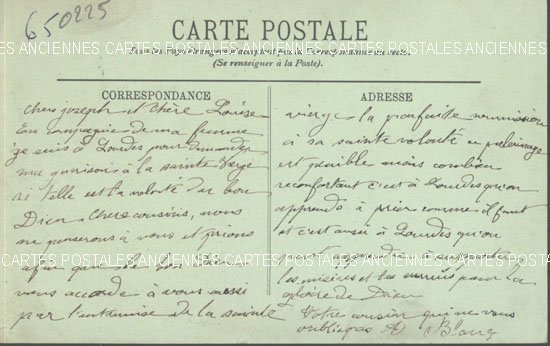 650225
CARTE POSTALE
ANCIENNES CARTES POSTALES ANCIENNES CARTES POSTALES ANCIENNES
(Se renseigner à la Poste).
CORRESPONDANCE
chers joseph et chère Louise
En compagnie de ma femme
je suis à Lourdes pour demander
ma guérison à la sainte Vierge
si telle est la volonté du bon
Dieu chers cousins, nous
ne penserons à vous et prions
afin que le bon Dieu
vous accorde à vous aussi
par l'entremise de la sainte
ADRESSE
vierge la parfaite soumission
à sa sainte volonté ce pelerinage
est penible mais combien
reconfortant c'est à Lourdes qu'on
apprends à prier comme il faut
et c'est aussi à Lourdes qu'on
apprends à supporter
les misères et les ennuis pour la
gloire de Dieu
Votre cousin qui ne vous
oublie pas